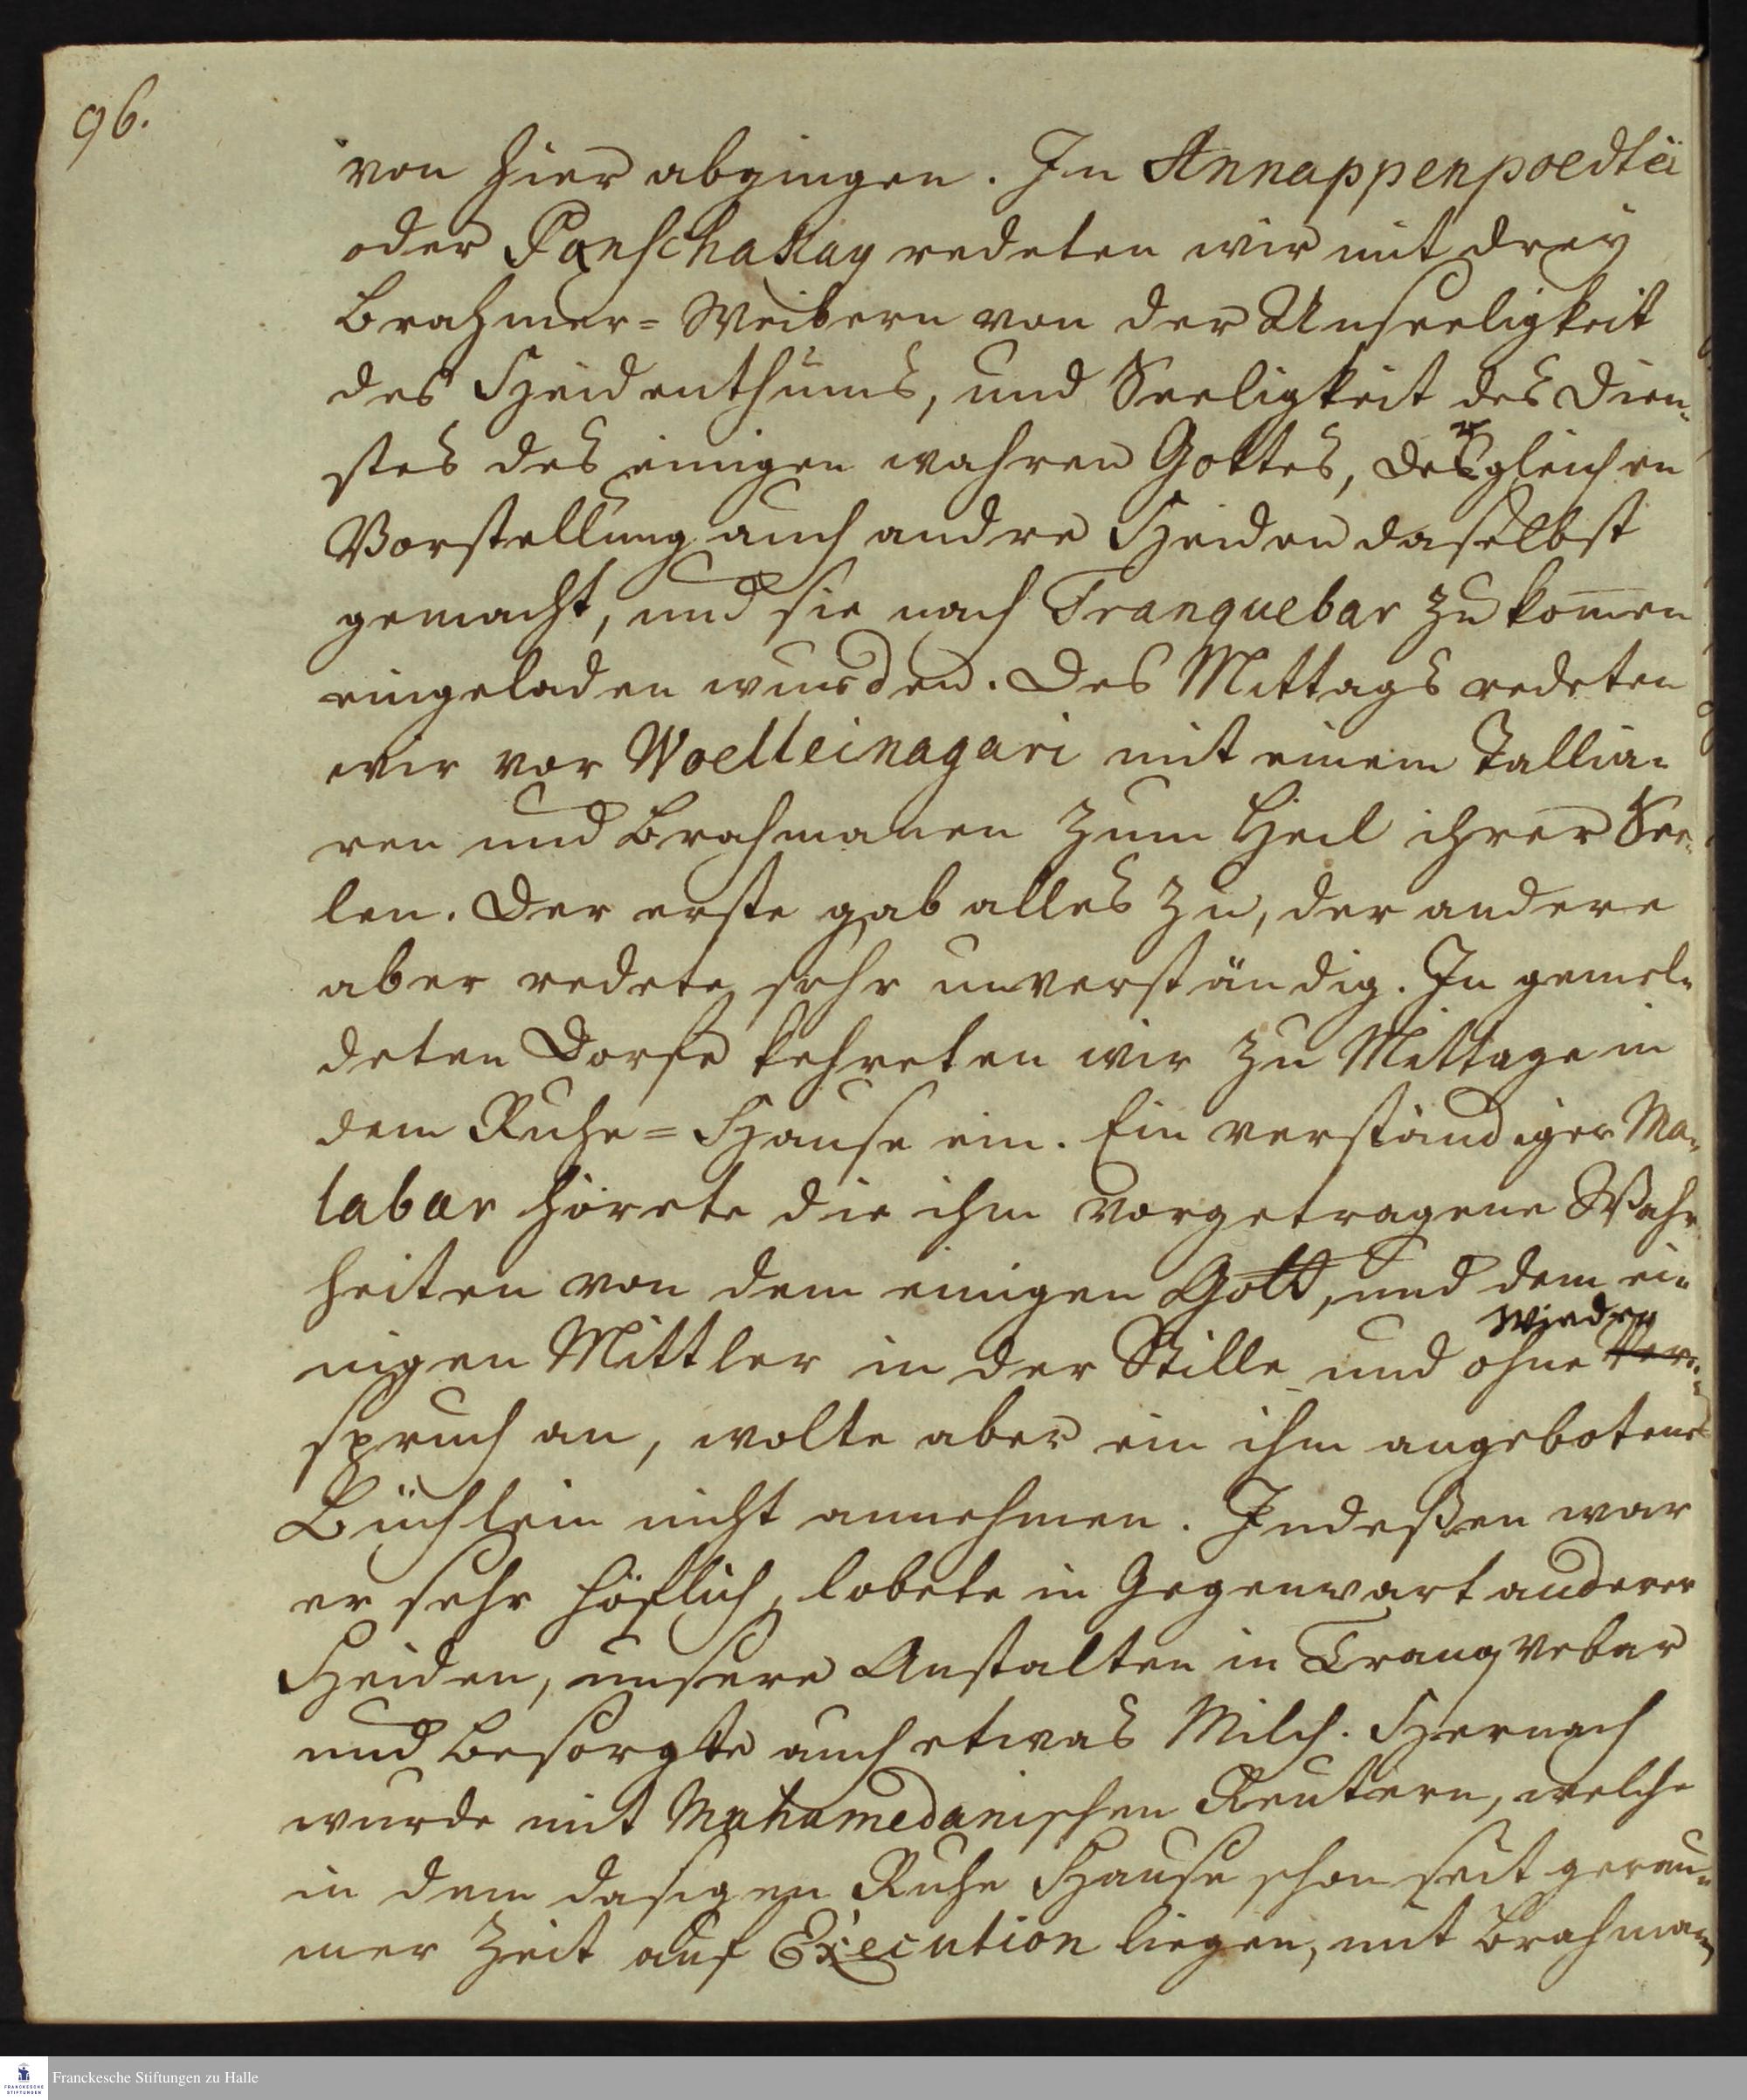 96.
von hier abgingen. In Annappenpoedtei
oder Panschakay redeten wir mit drey
Brahmer=Weibern von der Unseeligkeit
des Heidenthums, und Seeligkeit des Dien-
stes des einigen wahren Gottes, dergleichen
Vorstellung auch andre Heiden daselbst
gemacht, und sie nach Tranquebar zu kom̅en
eingeladen wurden. Des Mittags redeten
wir vor Woelleinagari mit einem Tallia-
ren und Brahmanen zum Heil ihrer See-
len. Der erste gab alles zu, der andere
aber redete sehr unverständig. In gemel-
deten Dorfe kehreten wir zu Mittage in
dem Ruhe=Hause ein. Ein verständiger Ma-
labar hörete die ihm vorgetragene Wahr
heiten von dem einigen Gott, und dem ei-
nigen Mittler in der Stille und ohne Wieder
spruch an, wolte aber ein ihm angebotenes
Büchlein nicht annehmen. Indeßen war
er sehr höflich, lobete in Gegenwart anderer
Heiden, unsere Anstalten in Tranqvebar
und besorgte auch etwas Milch. Hernach
wurde mit Muhamedanischen Reutern, welche
in dem dasigen Ruhe Hause schon seit gerau-
mer Zeit auf Execution liegen, mit Brahman
Franckesche Stiftungen zu Halle